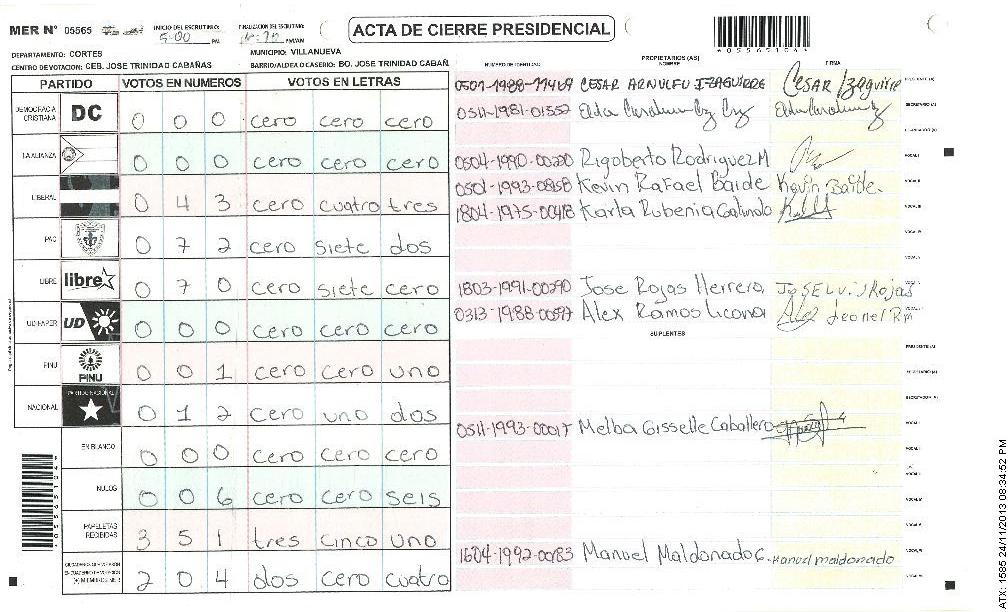 MER N° 05565
INICIO DEL ESCRUTINIO: 5:00 PM
FINALIZACION DEL ESCRUTINIO: PM/AM
ACTA DE CIERRE PRESIDENCIAL
DEPARTAMENTO: CORTES
MUNICIPIO: VILLANUEVA
CENTRO DE VOTACION: CEB. JOSE TRINIDAD CABAÑAS
BARRIO/ALDEA O CASERIO: BO. JOSE TRINIDAD CABAÑ
PROPIETARIOS (AS)
NUMERO DE IDENTIDAD NOMBRE FIRMA
PARTIDO VOTOS EN NUMEROS VOTOS EN LETRAS
DEMOCRACIA CRISTIANA DC 0 0 0 cero cero cero
LA ALIANZA 0 0 0 cero cero cero
LIBERAL 0 4 3 cero cuatro tres
PAC 0 7 2 cero siete dos
LIBRE libre 0 7 0 cero siete cero
UD/FAPER UD 0 0 0 cero cero cero
PINU PINU 0 0 1 cero cero uno
NACIONAL PARTIDO NACIONAL 0 1 2 cero uno dos
EN BLANCO 0 0 0 cero cero cero
NULOS 0 0 6 cero cero seis
PAPELETAS RECIBIDAS 3 5 1 tres cinco uno
CIUDADANOS QUE VOTARON
EN CUADERNO DE VOTACION
(+) MIEMBROS MER 2 0 4 dos cero cuatro
CESAR ARNULFO IZAGUIRRE Cesar Izaguirre PRESIDENTE (A)
0511-1981-01552 SECRETARIO (A)
0504-1990-00220 Rigoberto Rodriguez M VOCAL I
0501-1993-0858 Kevin Rafael Baide Kevin Baide VOCAL II
1804-1975-00418 Karla Rubenia Galindo VOCAL III
VOCAL IV
VOCAL V
1803-1991-00290 Jose Rojas Herrera
0313-1988-00597 Alex Ramos Licona
SUPLENTES
PRESIDENTE (A)
SECRETARIO (A)
0511-1993-00017 Melba Gisselle Caballero VOCAL I
1604-1992-00183 Manuel Maldonado G. Manuel maldonado
ATX: 1585 24/11/2013 08:34:52 PM